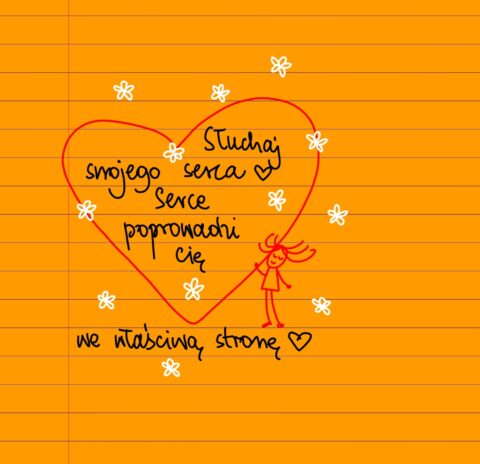 Słuchaj
swojego serca ♡
Serce
poprowadzi
cię
we właściwą stronę ♡